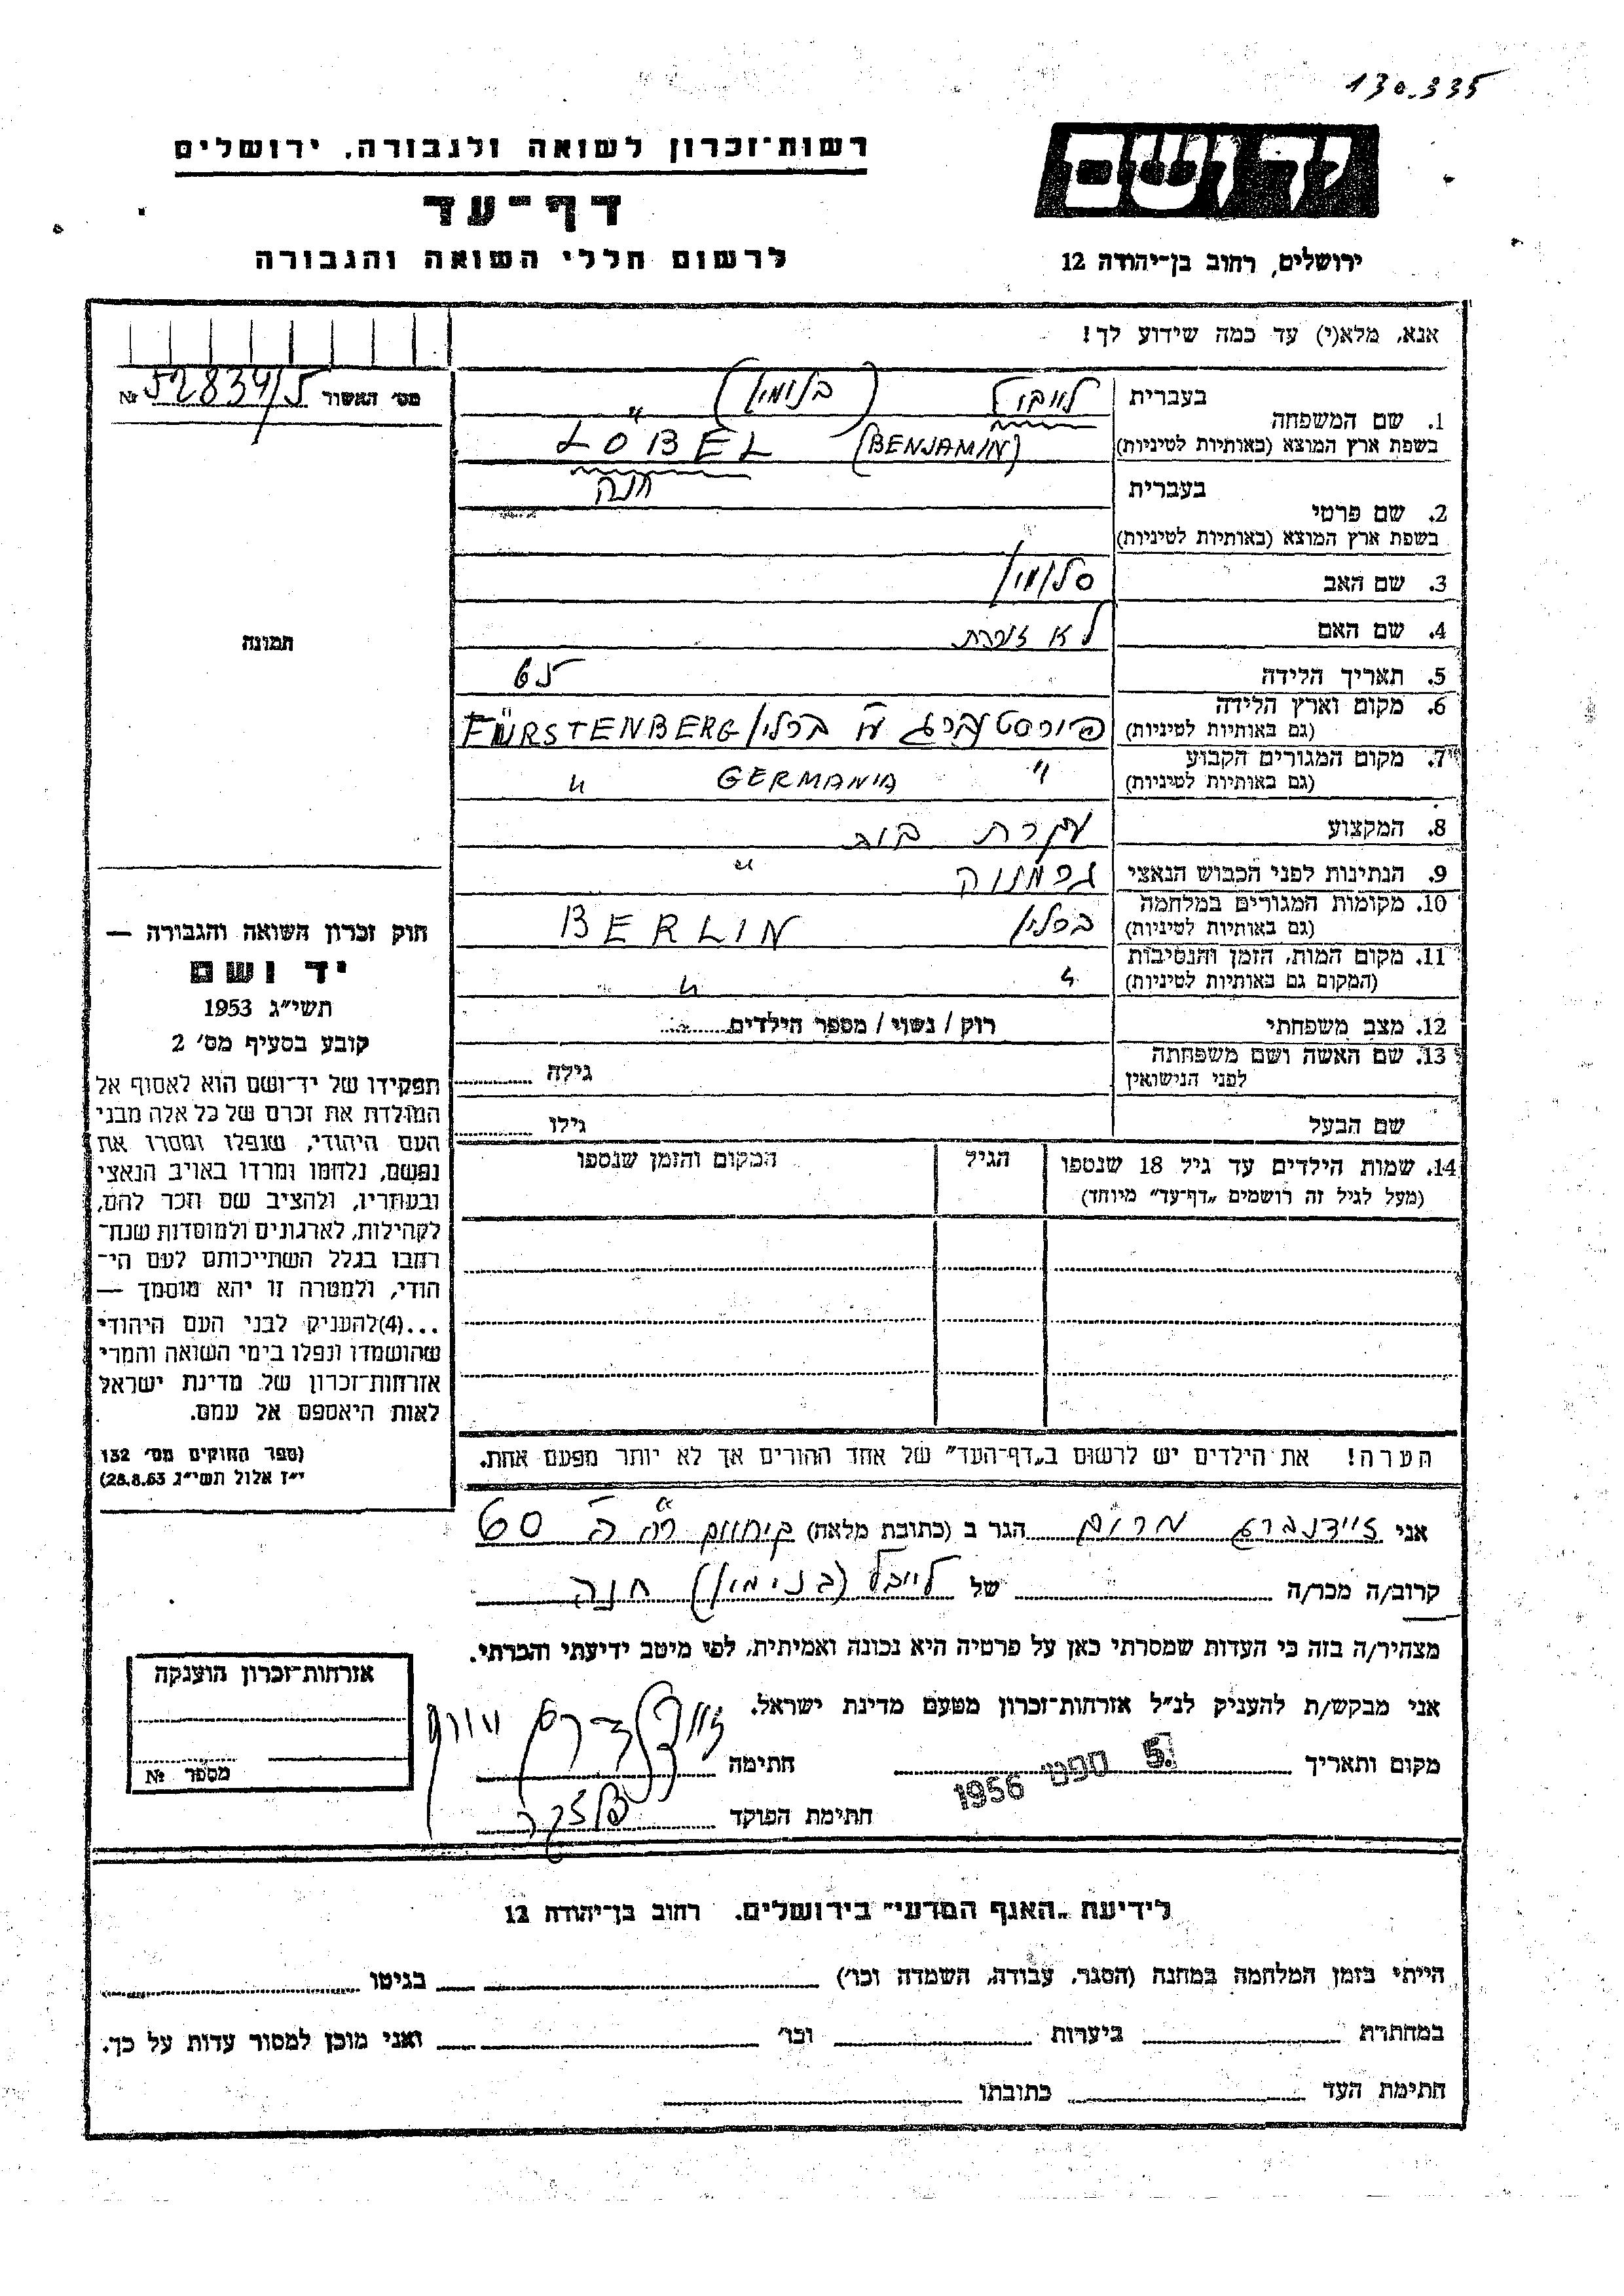 130.335
רשות־זכרון לשואה ולגבורה, ירושלים
יד ושם
דף־עד
לרשום חללי השואה והגבורה
ירושלים, רחוב בן־יהודה 12
אנא, מלא(י) עד כמה שידוע לך!
מס׳ האשור № 52834/5
בעברית
1. שם המשפחה
בשפת ארץ המוצא (באותיות לטיניות) LÖBEL (BENJAMIN)
בעברית חנה
2. שם פרטי
בשפת ארץ המוצא (באותיות לטיניות)
3. שם האב סלומון
4. שם האם לא זוכרת
תמונה
5. תאריך הלידה 65
6. מקום וארץ הלידה
(גם באותיות לטיניות) ברלין FÜRSTENBERG
7. מקום המגורים הקבוע
(גם באותיות לטיניות) " GERMANIA "
8. המקצוע עקרת בית
9. הנתינות לפני הכבוש הנאצי גרמניה
10. מקומות המגורים במלחמה
(גם באותיות לטיניות) ברלין BERLIN
11. מקום המות, הזמן והנסיבות
(המקום גם באותיות לטיניות) " "
12. מצב משפחתי רוק / נשוי / מספר הילדים
13. שם האשה ושם משפחתה
לפני הנישואין גילה
שם הבעל גילו
14. שמות הילדים עד גיל 18 שנספו הגיל המקום והזמן שנספו
(מעל לגיל זה רושמים „דף־עד” מיוחד)
חוק זכרון השואה והגבורה —
יד ושם
תשי״ג 1953
קובע בסעיף מס׳ 2
תפקידו של יד־ושם הוא לאסוף אל
המולדת את זכרם של כל אלה מבני
העם היהודי, שנפלו ומסרו את
נפשם, נלחמו ומרדו באויב הנאצי
ובעוזריו, ולהציב שם וזכר להם,
לקהילות, לארגונים ולמוסדות שנח־
רבו בגלל השתייכותם לעם הי־
הודי, ולמטרה זו יהא מוסמך —
...(4)להעניק לבני העם היהודי
שהושמדו ונפלו בימי השואה והמרי
אזרחות־זכרון של מדינת ישראל
לאות היאספם אל עמם.
(ספר החוקים מס׳ 132
י״ז אלול תשי״ג 28.8.53)
הערה! את הילדים יש לרשום ב„דף־העד” של אחד ההורים אך לא יותר מפעם אחת.
אני זיידנברג מרים הגר ב (כתובת מלאה) 60
קרוב/ה מכר/ה של לייבל (בנימין) חנה
מצהיר/ה בזה כי העדות שמסרתי כאן על פרטיה היא נכונה ואמיתית, לפי מיטב ידיעתי והכרתי.
אני מבקש/ת להעניק לנ״ל אזרחות־זכרון מטעם מדינת ישראל.
מקום ותאריך 5. ספט 1956 חתימה
חתימת הפוקד
אזרחות־זכרון הוענקה
מספר №
לידיעת „האגף המדעי” בירושלים. רחוב בן־יהודה 12
הייתי בזמן המלחמה במחנה (הסגר, עבודה, השמדה וכו׳) בגיטו
במחתרת ביערות וכו׳ ואני מוכן למסור עדות על כך.
חתימת העד כתובתו